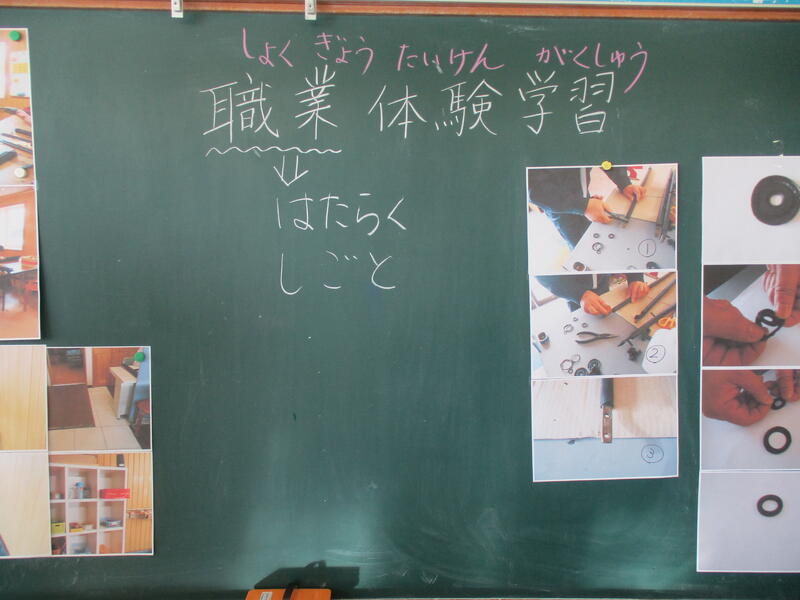 しょく ぎょう たいけん がくしゅう
職業体験学習
はたらく
しごと
①
②
③